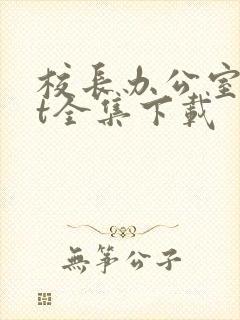 校长办公室
t全集下载
無筝公子